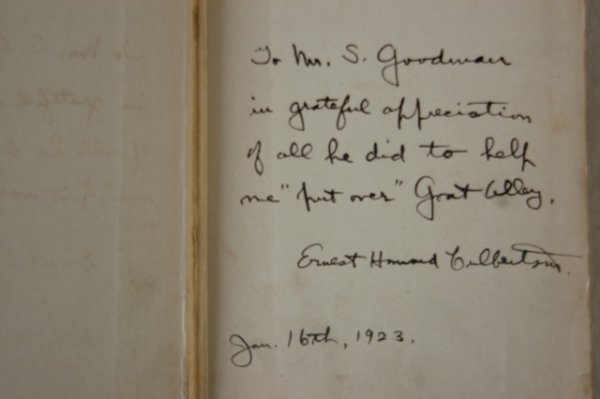 To Mr. S. Goodman
in grateful appreciation
of all he did to help
me "put over" Goat Alley.
Ernest Howard Culbertson.
Jan. 16th, 1923.